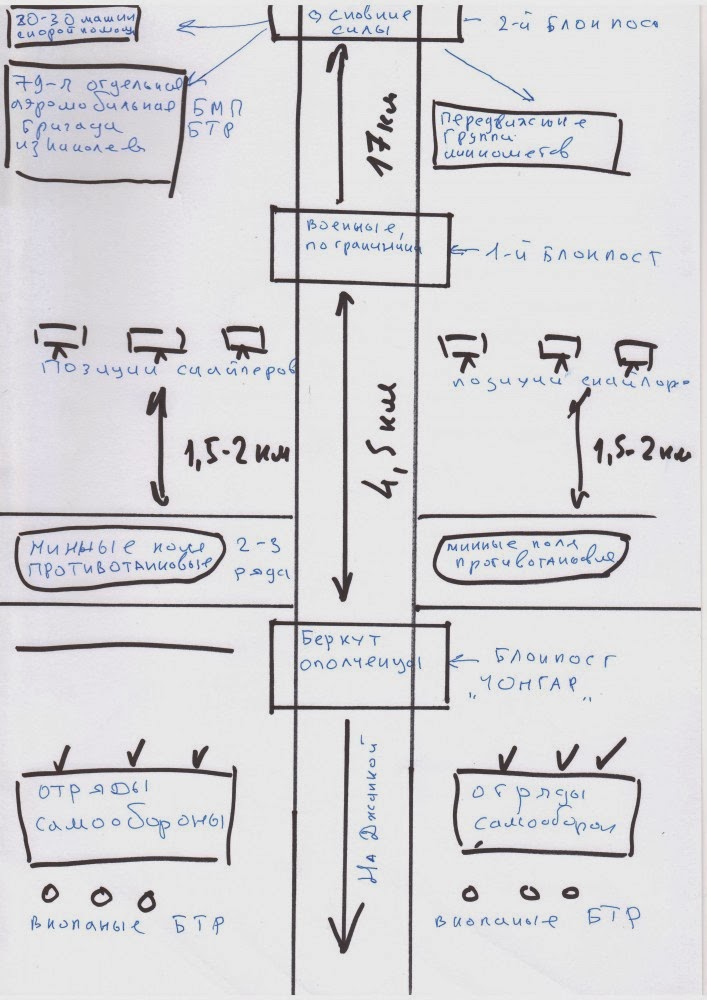 20-30 машин
скорой помощи
Основние
силы
2-й Блокпост
79-я отдельная
аэромобильная
бригада
из Николаев
БМП
БТР
17км
Передвижние
группи
минометов
военные,
пограничники
1-й Блокпост
Позиции снайперов
позиции снайперо
1,5-2 км
4,5 км
1,5-2 км
минные поля
противотанковые
2-3
ряда
минные поля
противотанковые
Беркут
ополченцы
Блокпост
"ЧОНГАР"
отряды
самообороны
На Джанкой
отряды
самооборон
вкопаные БТР
вкопаные БТР